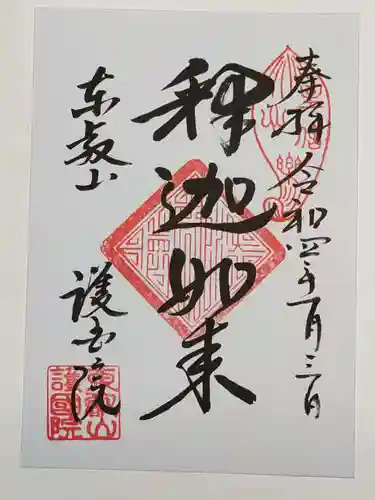 奉拝 令和四年一月三日
釈迦如来
東叡山
護国院
東叡山
護国院